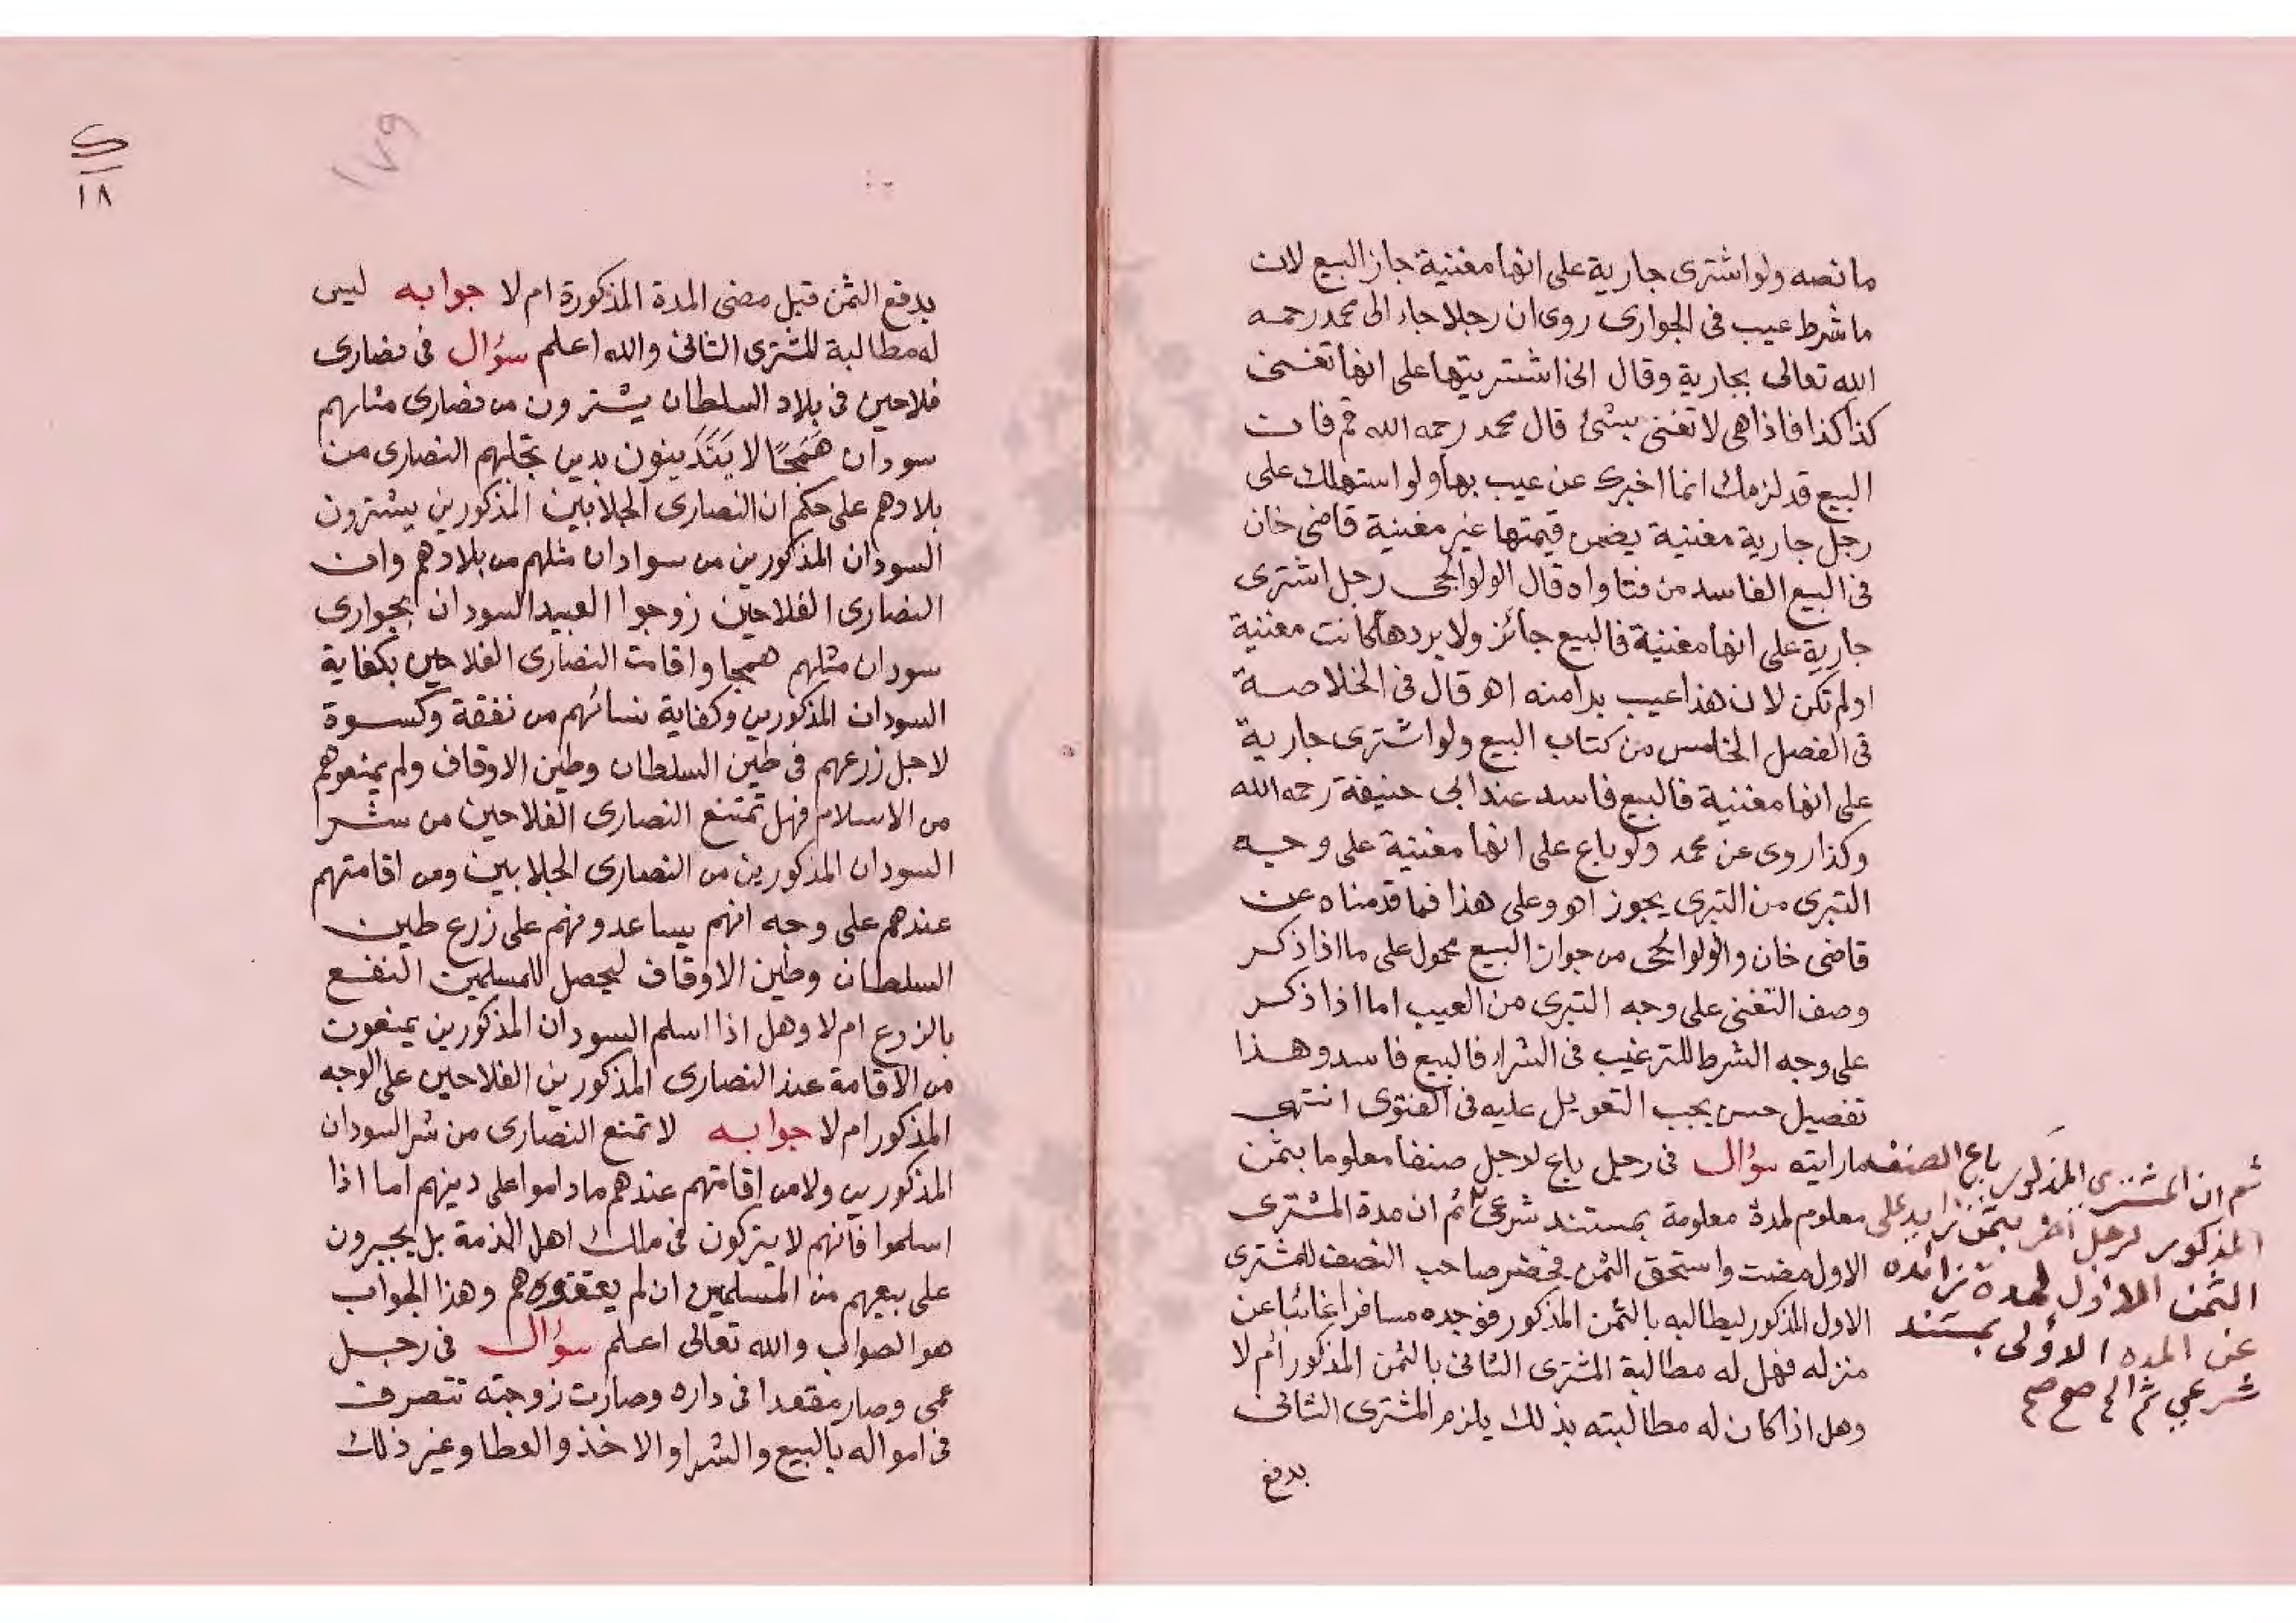 ما نصه ولو اشترى جارية على انها مغنية جاز البيع لان
ما شرط عيب فى الجوارى روى ان رجلا جاء الى محمد رحمه
الله تعالى بجارية وقال انى اشتريتها على انها تغنى
كذا كذا فاذا هى لا تغنى بشئ قال محمد رحمه الله قم فان
البيع قد لزمك انما اخبرك عن عيب بها ولو استهلك على
رجل جارية مغنية يضمن قيمتها غير مغنية قاضى خان
فى البيع الفاسد من فتاواه قال الولوالجى رجل اشترى
جارية على انها مغنية فالبيع جائز ولا يردها كانت مغنية
او لم تكن لان هذا عيب بدا منه اهـ قال فى الخلاصة
فى الفصل الخامس من كتاب البيع ولو اشترى جارية
على انها مغنية فالبيع فاسد عند ابى حنيفة رحمه الله
وكذا روى عن محمد ولو باع على انها مغنية على وجه
التبرى من التبرى يجوز اهـ وعلى هذا فما قدمناه عن
قاضى خان والولوالجى من جواز البيع محمول على ما اذا ذكر
وصف التغنى على وجه التبرى من العيب اما اذا ذكر
على وجه الشرط للترغيب فى الشراء فالبيع فاسد وهذا
تفصيل حسن يجب التعويل عليه فى الفتوى انتهى
ما رايته سؤال فى رجل باع لرجل صنفا معلوما بثمن
معلوم لمدة معلومة بمستند شرعى ثم ان مدة المشترى
الاول مضت واستحق الثمن فحضر صاحب النصف للمشترى
الاول المذكور ليطالبه بالثمن المذكور فوجده مسافرا غائبا عن
منزله فهل له مطالبة المشترى الثانى بالثمن المذكور أم لا
وهل اذا كان له مطالبته بذلك يلزم المشترى الثانى
بدفع
ثم ان المشترى المذكور باع الصنف
المذكور لرجل آخر بثمن زايد على
الثمن الاول لمدة زائده
عن المده الاولى بمستند
شرعي ثم الخ صح صح
١٧٩
١٨
بدفع الثمن قبل مضى المدة المذكورة ام لا جوابه ليس
له مطالبة للمشترى الثانى والله اعلم سؤال فى نصارى
فلاحين فى بلاد السلطان يشترون من نصارى مثلهم
سودان هَمَجًا لا يَتَدَينون بدين تجلبهم النصارى من
بلادهم على حكم ان النصارى الجلابين المذكورين يشترون
السودان المذكورين من سوادان مثلهم من بلادهم وان
النصارى الفلاحين زوجوا العبيد السودان بجوارى
سودان مثلهم همجا واقامت النصارى الفلاحين بكفاية
السودان المذكورين وكفاية نسائهم من نفقة وكسوة
لاجل زرعهم فى طين السلطان وطين الاوقاف ولم يمنعوهم
من الاسلام فهل تمتنع النصارى الفلاحين من شرا
السودان المذكورين من النصارى الجلابين ومن اقامتهم
عندهم على وجه انهم يساعدونهم على زرع طين
السلطان وطين الاوقاف ليحصل للمسلمين النفع
بالزرع ام لا وهل اذا اسلم السودان المذكورين يمنعون
من الاقامة عند النصارى المذكورين الفلاحين على الوجه
المذكور ام لا جوابه لا تمنع النصارى من شر السودان
المذكورين ولا من اقامتهم عندهم ماداموا على دينهم اما اذا
اسلموا فانهم لا يتركون فى ملك اهل الذمة بل يجبرون
على بيعهم من المسلمين ان لم يعتقوهم وهذا الجواب
هو الصواب والله تعالى اعلم سؤال فى رجل
عمى وصار مقعدا فى داره وصارت زوجته تتصرف
فى امواله بالبيع والشرا والاخذ والعطا وغير ذلك